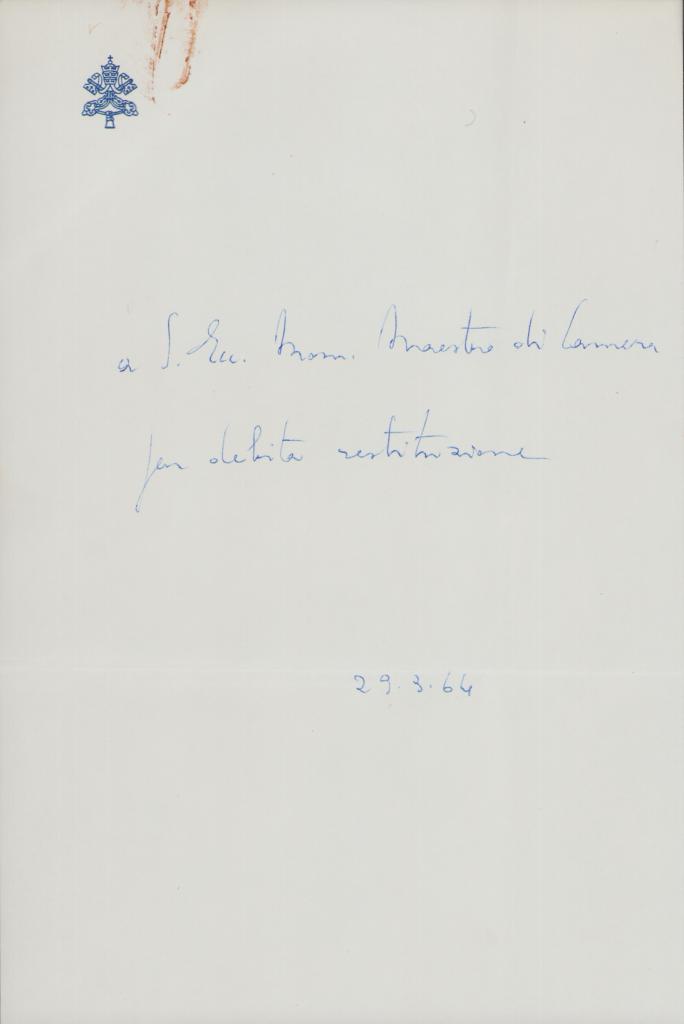 a S. Ecc. Mons. Maestro di Camera
per debita restituzione
29.3.64